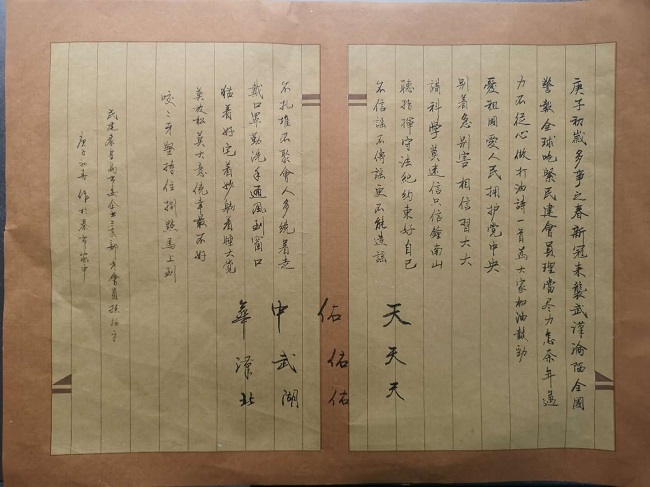 庚子初歲多事之春新冠来襲武漢淪陷全國
警報全球吃緊民建會員理當尽力怎奈年邁
力不從心做打油詩一首為大家加油鼓勁
愛祖國愛人民拥护党中央
别着急别害 相信習大大
講科學莫迷信只信鐘南山
聽指揮守法纪约束好自己
不信謠不傳謠更不能造謠
不扎堆不聚會人多绕着走
戴口罩勤洗手通風到窗口
猫着好宅着妙躺着睡大觉
莫放松莫大意侥幸最不好
咬咬牙坚持住捌 馬上到
天佑中華
天佑武漢
天佑湖北
民建 市委 支部 會員
庚子 春 作於 家中